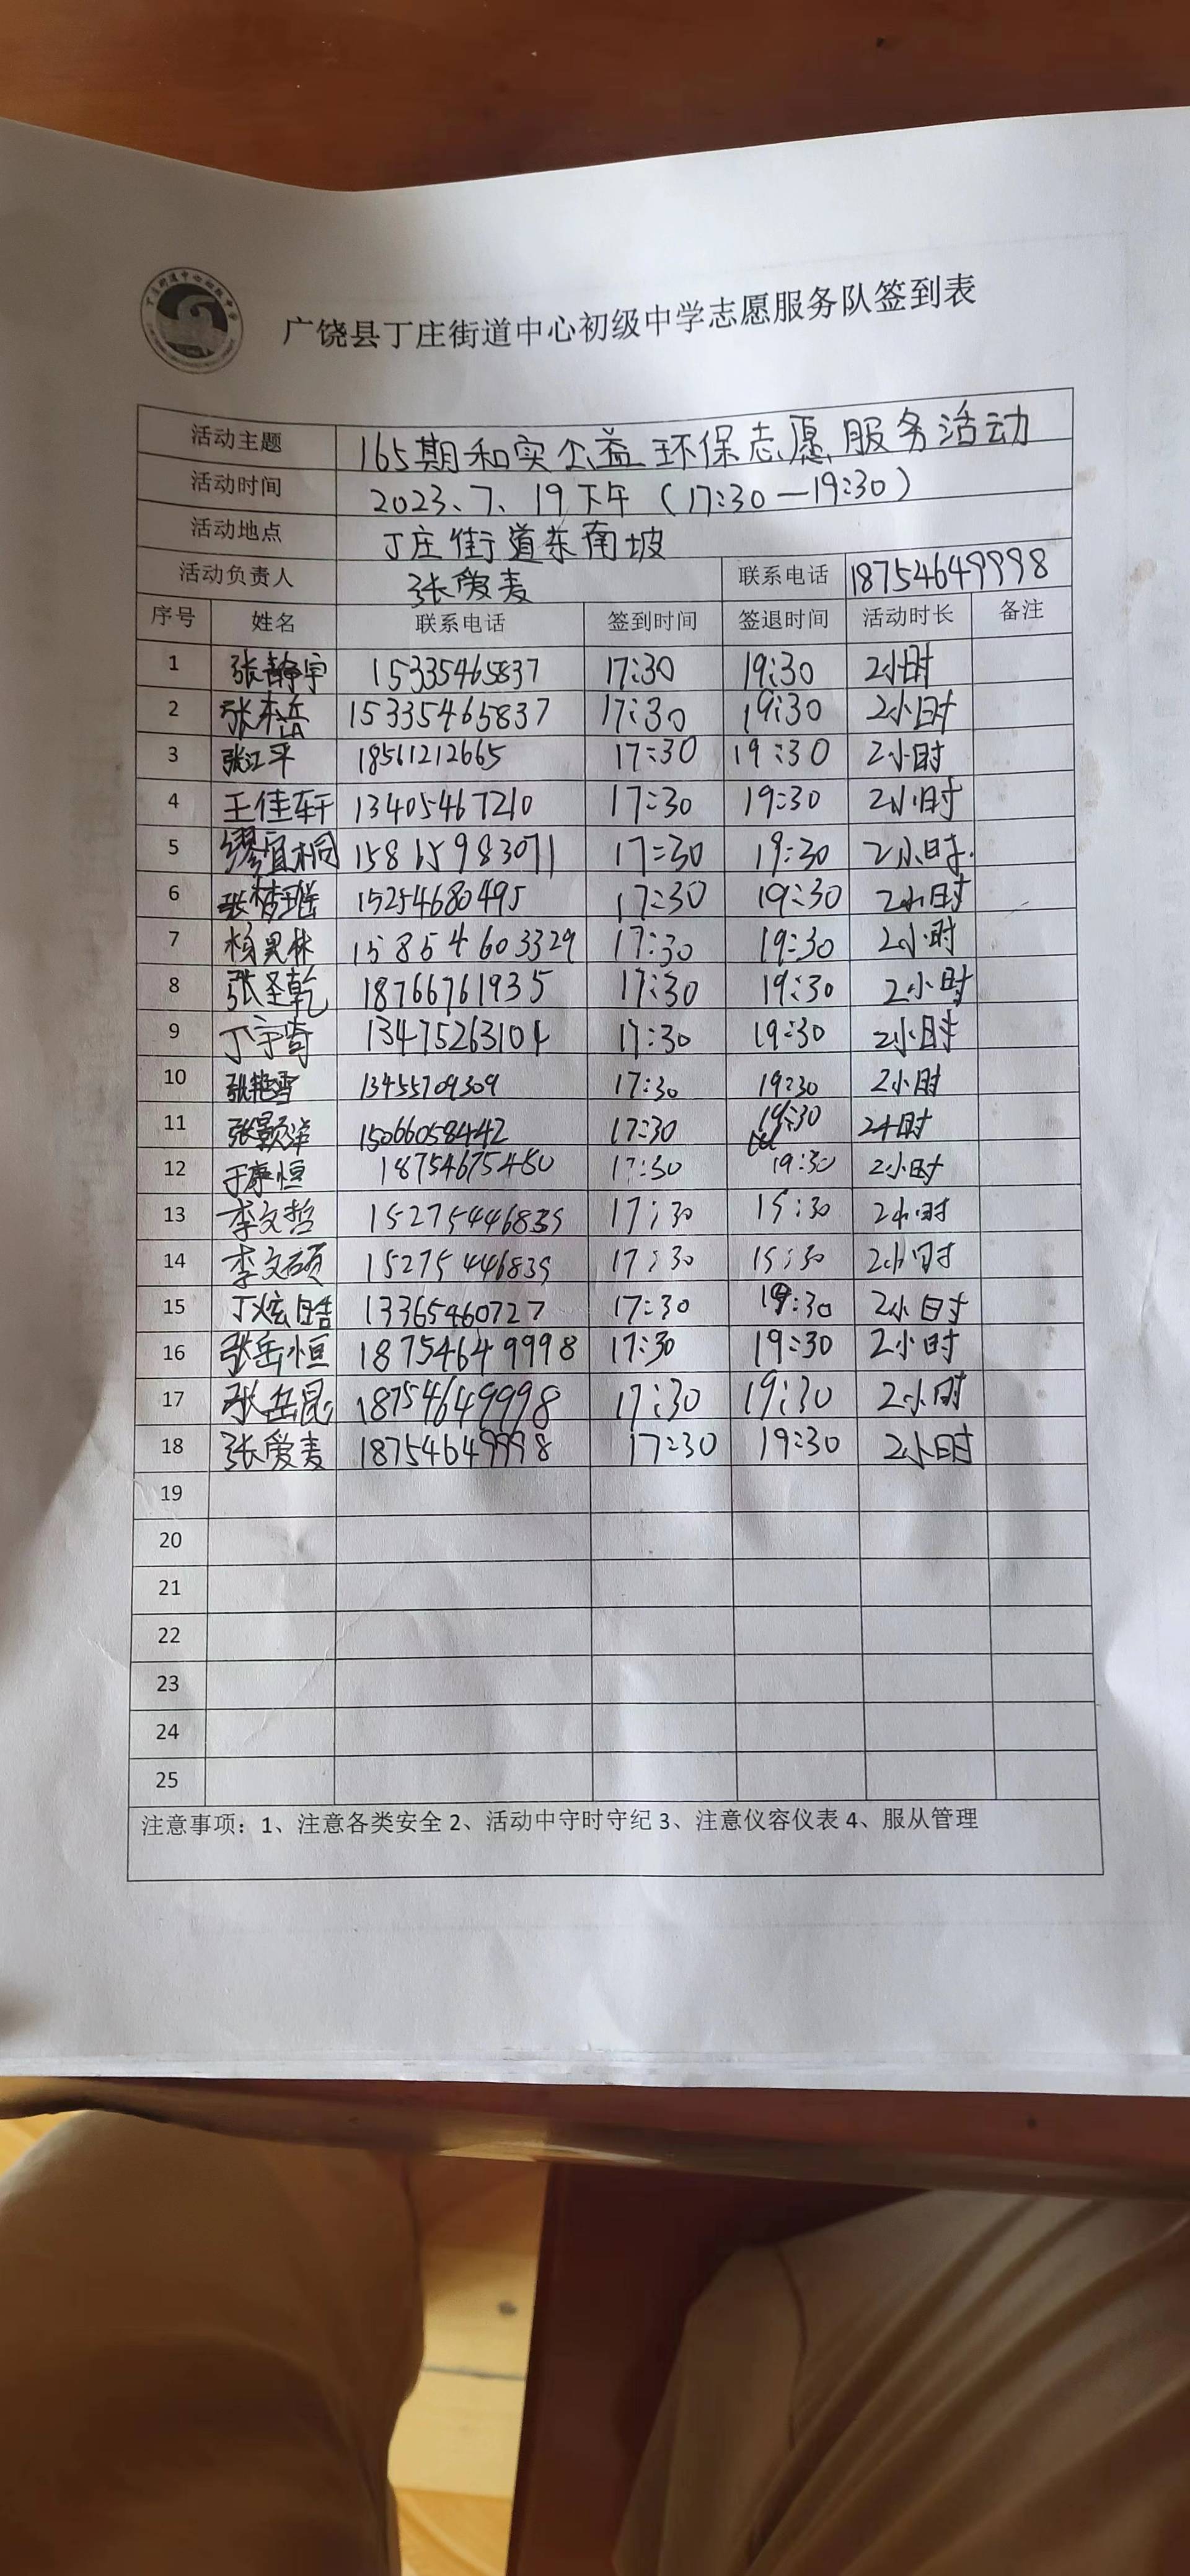 广饶县丁庄街道中心初级中学志愿服务队签到表
活动主题 165期和实公益环保志愿服务活动
活动时间 2023、7、19下午(17:30—19:30)
活动地点 丁庄街道东南坡
活动负责人 张爱麦 联系电话 18754649998
序号 姓名 联系电话 签到时间 签退时间 活动时长 备注
1 张静宇 15335465837 17:30 19:30 2小时
2 张本岳 15335465837 17:30 19:30 2小时
3 张江平 18561212665 17:30 19:30 2小时
4 王佳轩 13405467210 17:30 19:30 2小时
5 缪宜桐 15815983071 17:30 19:30 2小时.
6 张梦瑶 15254680495 17:30 19:30 2小时
7 杨昊林 15854603329 17:30 19:30 2小时
8 张圣乾 18766761935 17:30 19:30 2小时
9 丁宇奇 13475263104 17:30 19:30 2小时
10 张艳雪 13455709309 17:30 19:30 2小时
11 张颢洋 15066058442 17:30 19:30 2小时
12 于康恒 18754675450 17:30 19:30 2小时
13 李文哲 15275446835 17:30 15:30 2小时
14 李文硕 15275446835 17:30 15:30 2小时
15 丁炫皓 13365460727 17:30 19:30 2小时
16 张岳恒 18754649998 17:30 19:30 2小时
17 张岳昆 18754649998 17:30 19:30 2小时
18 张爱麦 18754649998 17:30 19:30 2小时
19
20
21
22
23
24
25
注意事项：1、注意各类安全 2、活动中守时守纪 3、注意仪容仪表 4、服从管理